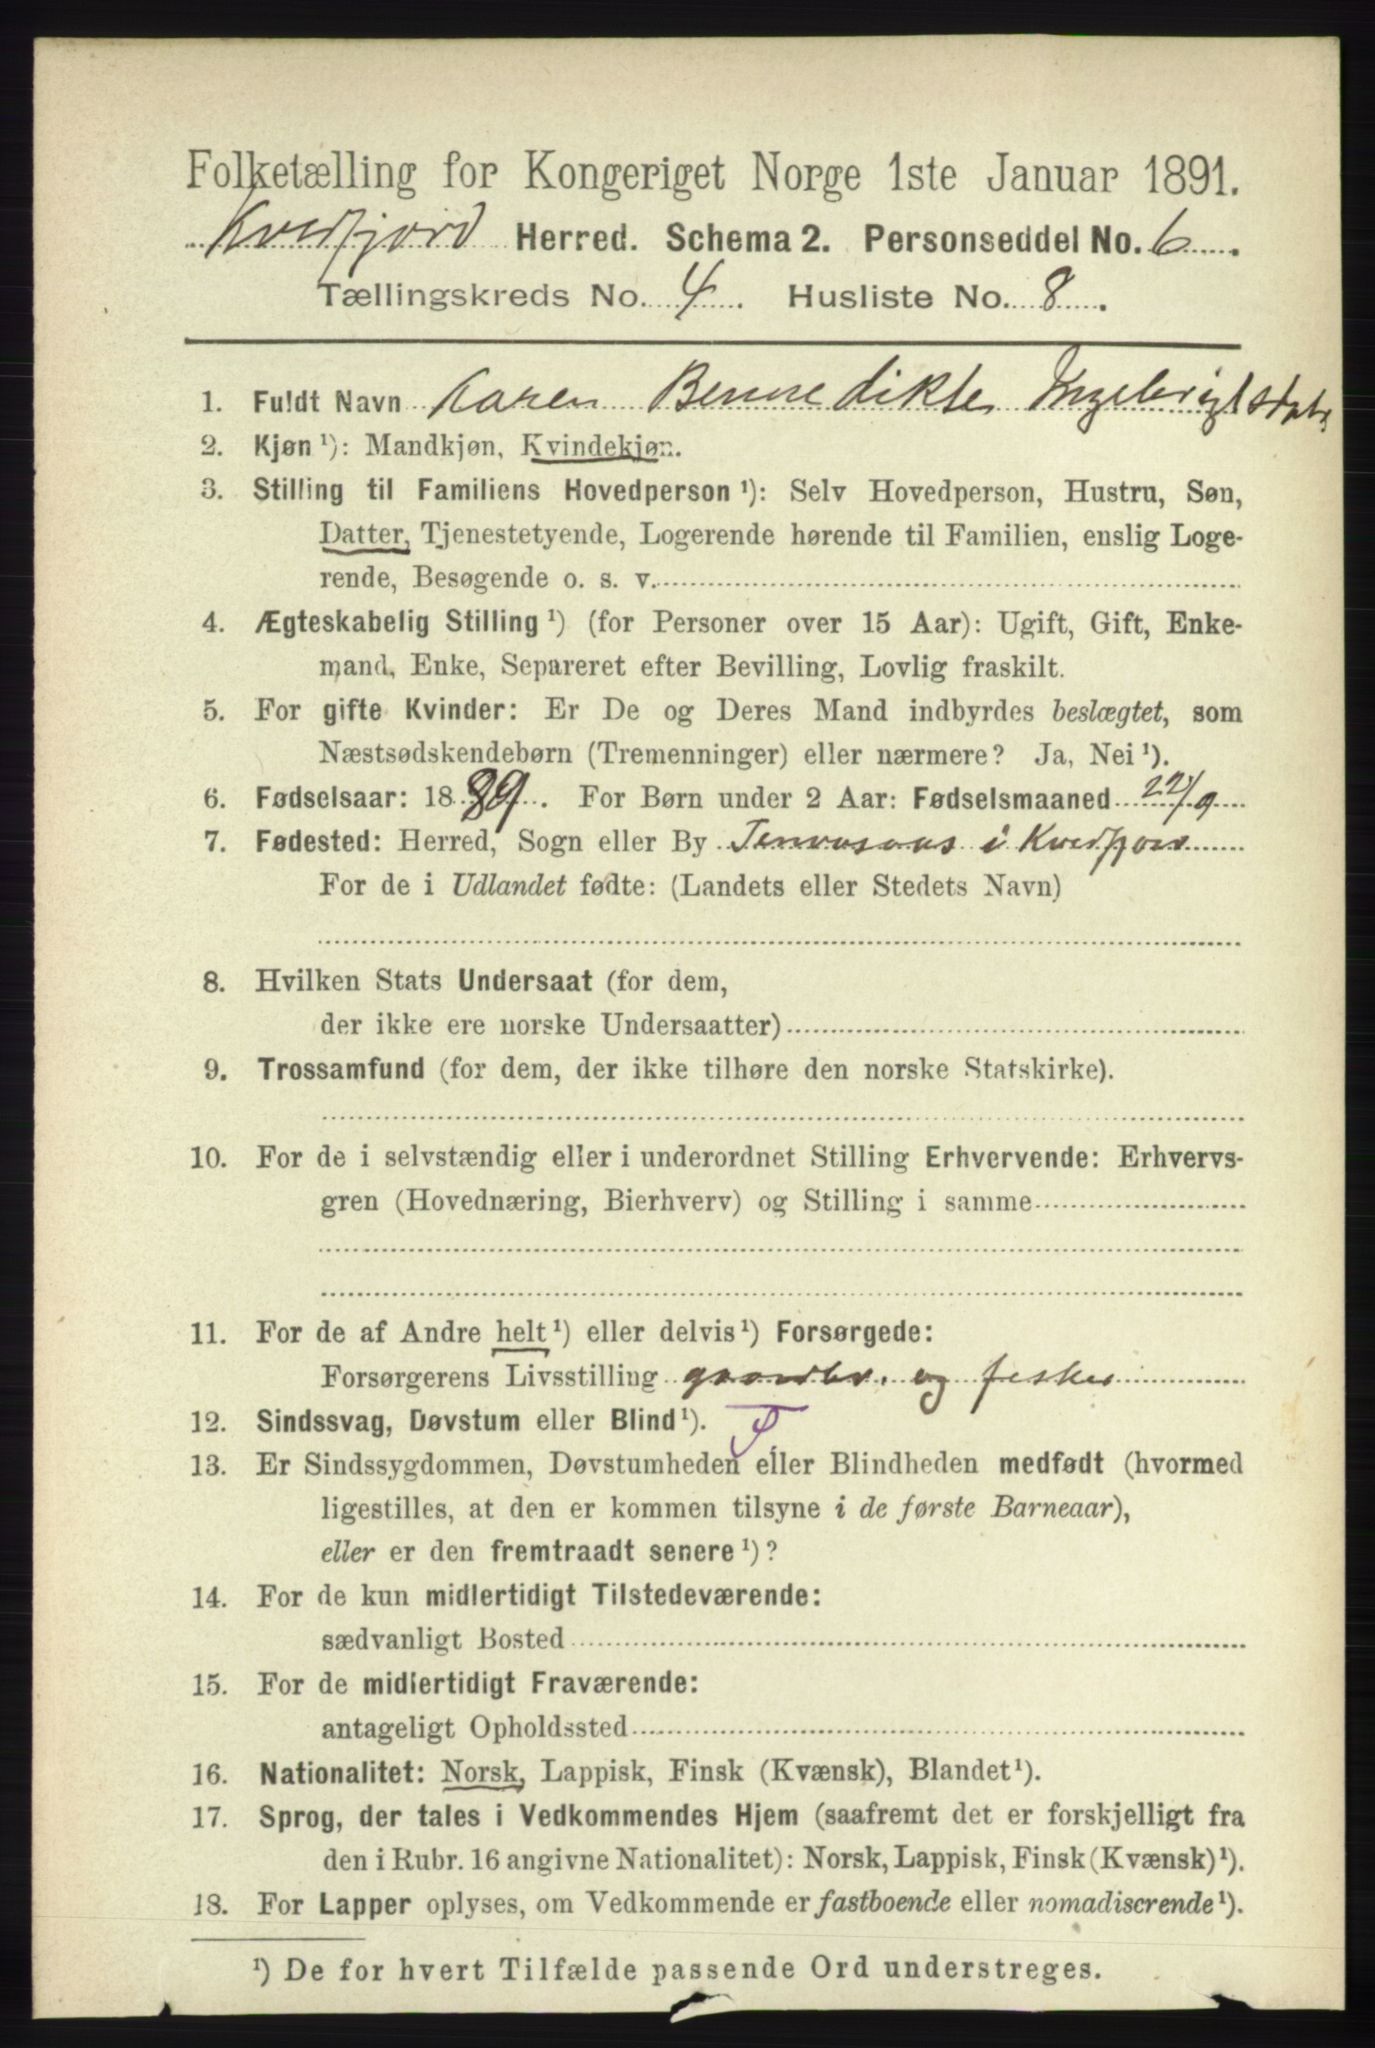 Folketælling for Kongeriget Norge 1ste Januar 1891.
Kvedfjord Herred. Schema 2. Personseddel No. 6.
Tællingskreds No. 4. Husliste No. 8.
1. Fuldt Navn Karen Bennedikte Ingebrigtsdat.
2. Kjøn ¹): Mandkjøn, Kvindekjøn.
3. Stilling til Familiens Hovedperson ¹): Selv Hovedperson, Hustru, Søn,
Datter, Tjenestetyende, Logerende hørende til Familien, enslig Loge-
rende, Besøgende o. s. v.
4. Ægteskabelig Stilling ¹) (for Personer over 15 Aar): Ugift, Gift, Enke-
mand, Enke, Separeret efter Bevilling, Lovlig fraskilt.
5. For gifte Kvinder: Er De og Deres Mand indbyrdes beslægtet, som
Næstsødskendebørn (Tremenninger) eller nærmere? Ja, Nei ¹).
6. Fødselsaar: 1889. For Børn under 2 Aar: Fødselsmaaned 22/9
7. Fødested: Herred, Sogn eller By i Kvedfjord
For de i Udlandet fødte: (Landets eller Stedets Navn)
8. Hvilken Stats Undersaat (for dem,
der ikke ere norske Undersaatter)
9. Trossamfund (for dem, der ikke tilhøre den norske Statskirke).
10. For de i selvstændig eller i underordnet Stilling Erhvervende: Erhvervs-
gren (Hovednæring, Bierhverv) og Stilling i samme
11. For de af Andre helt ¹) eller delvis ¹) Forsørgede:
Forsørgerens Livsstilling gaardbr. og fisker
12. Sindssvag, Døvstum eller Blind ¹).
13. Er Sindssygdommen, Døvstumheden eller Blindheden medfødt (hvormed
ligestilles, at den er kommen tilsyne i de første Barneaar),
eller er den fremtraadt senere ¹)?
14. For de kun midlertidigt Tilstedeværende:
sædvanligt Bosted
15. For de midlertidigt Fraværende:
antageligt Opholdssted
16. Nationalitet: Norsk, Lappisk, Finsk (Kvænsk), Blandet ¹).
17. Sprog, der tales i Vedkommendes Hjem (saafremt det er forskjelligt fra
den i Rubr. 16 angivne Nationalitet): Norsk, Lappisk, Finsk (Kvænsk) ¹).
18. For Lapper oplyses, om Vedkommende er fastboende eller nomadiserende ¹).
¹) De for hvert Tilfælde passende Ord understreges.